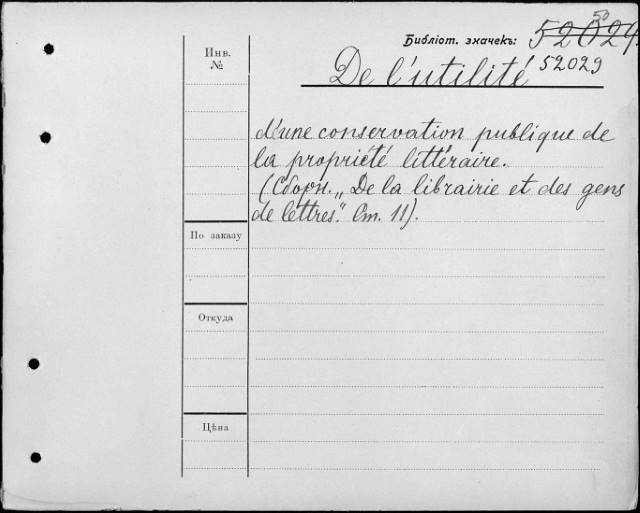 Библіот. значекъ: 52029
50
52029
Инв. №
De l'utilité
d'une conservation publique de
la propriété littéraire.
(Сборн. „De la librairie et des gens
de lettres". Ст. 11).
По заказу
Откуда
Цѣна